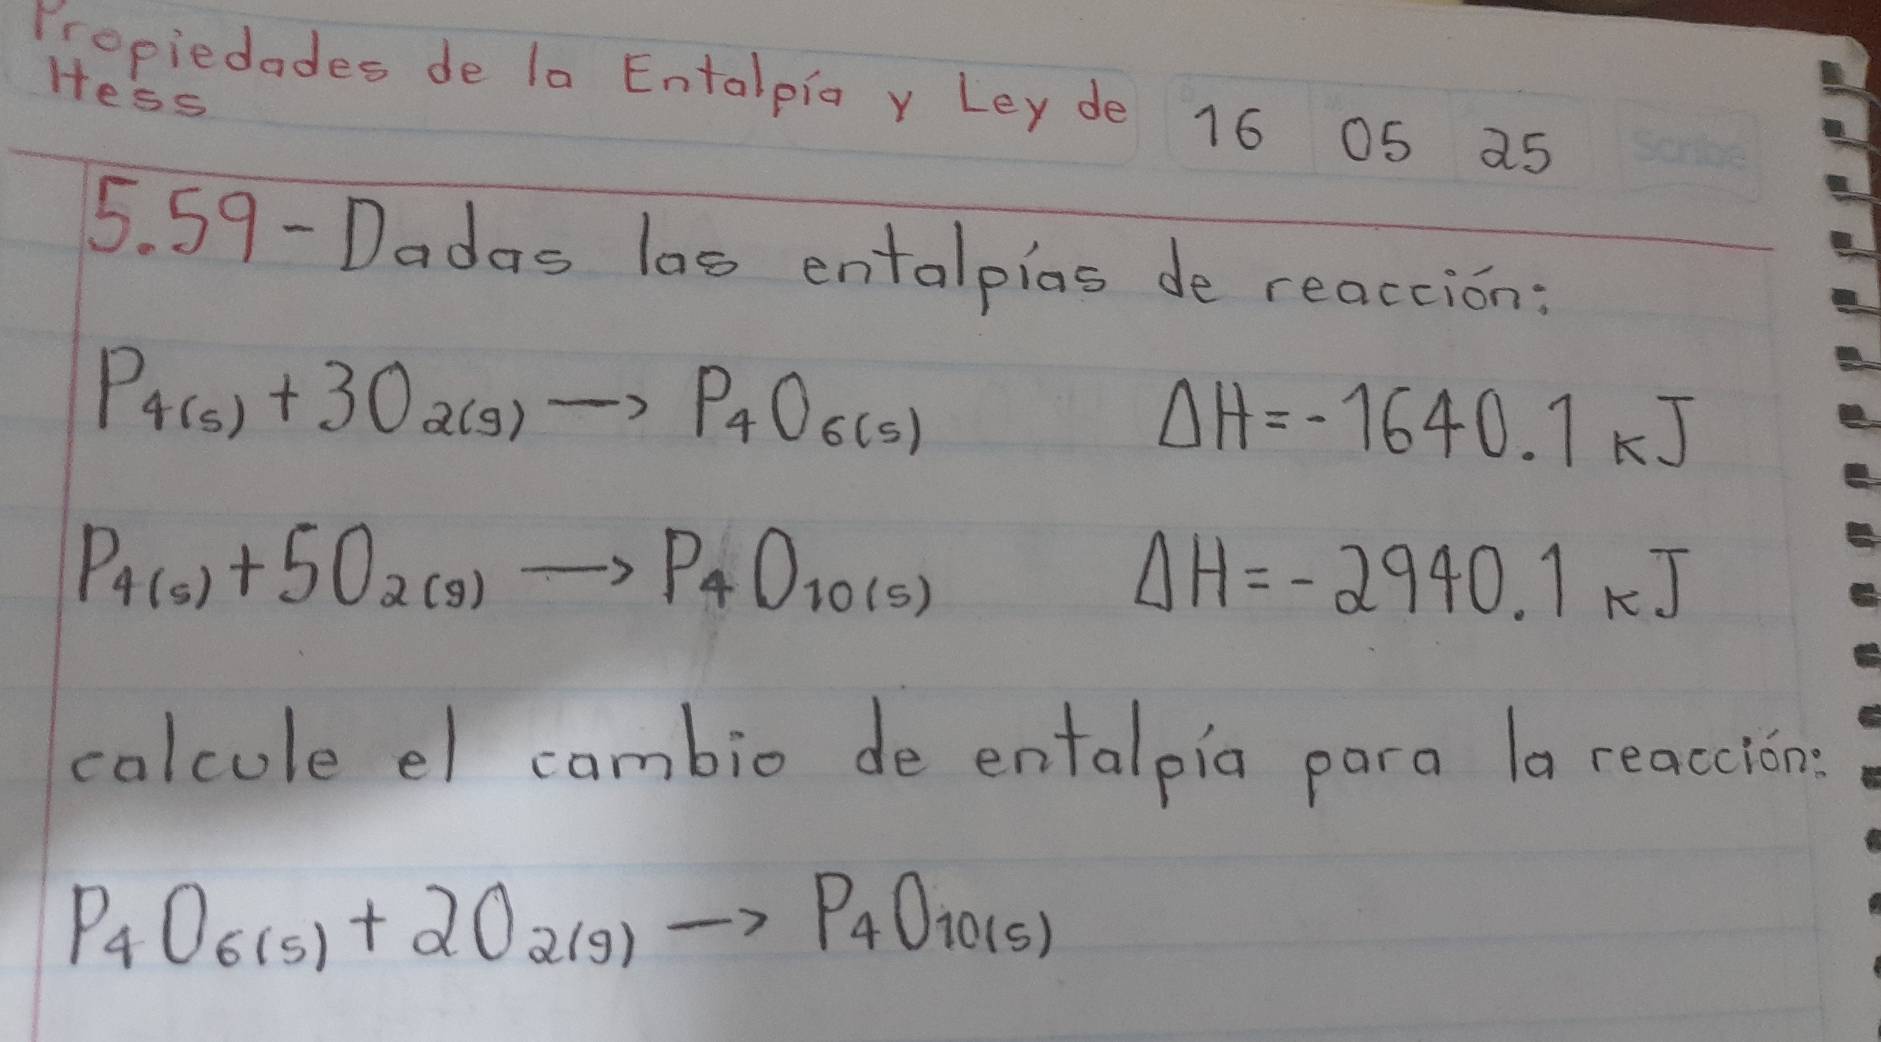 Propiedades de la Entalpía y Ley de
Hess
16 05 25
Scribe
5.59-Dadas las entalpías de reacción:
P₄(s) + 3O₂(g) → P₄O₆(s) ΔH=-1640.1 kJ
P₄(s) + 5O₂(g) → P₄O₁₀(s) ΔH=-2940.1 kJ
calcule el cambio de entalpía para la reacción:
P₄O₆(s) + 2O₂(g) → P₄O₁₀(s)